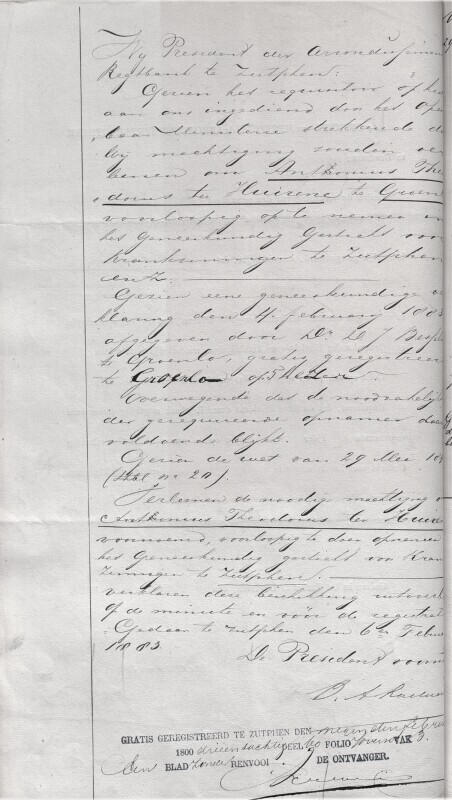 Wij President der Arrondissemen
Regtbank te Zutphen:
Gezien het requisitoir op he
aan ons ingediend door het Ope
baar Ministerie strekkende d
bij magtiging zouden ver
leenen om Anthonius The
odorus ter Huizene te Groen
voorloopig op te nemen in
het Geneeskundig Gesticht voor
Krankzinnigen te Zutphen
enz.
Gezien eene geneeskundige ve
klaring den 4 february 1883
afgegeven door Dr
te Groenlo, gratis geregistreer
te Groenlo op heden.
Overwegende dat de noodzakelijk
der gerequireerde opname daar
voldoende blijkt.
Gezien de wet van 29 Mei 18
(Stbl no 20).
Verleenen de noodig magtiging o
Anthonius Theodorus ter Huize
voornoemd, voorloopig te doen opnemen
het Geneeskundig gesticht voor Kran
zinnigen te Zutphen.
verklaren deze beschikking uitvoer
op de minute en vóór de registrat
Gedaan te Zutphen den 6en Febru
1883.
De President voorn
GRATIS GEREGISTREERD TE ZUTPHEN DEN negenden Febru
1800 drieentachtig DEEL 60 FOLIO VAK 3.
Een BLAD Zonder RENVOOI DE ONTVANGER.